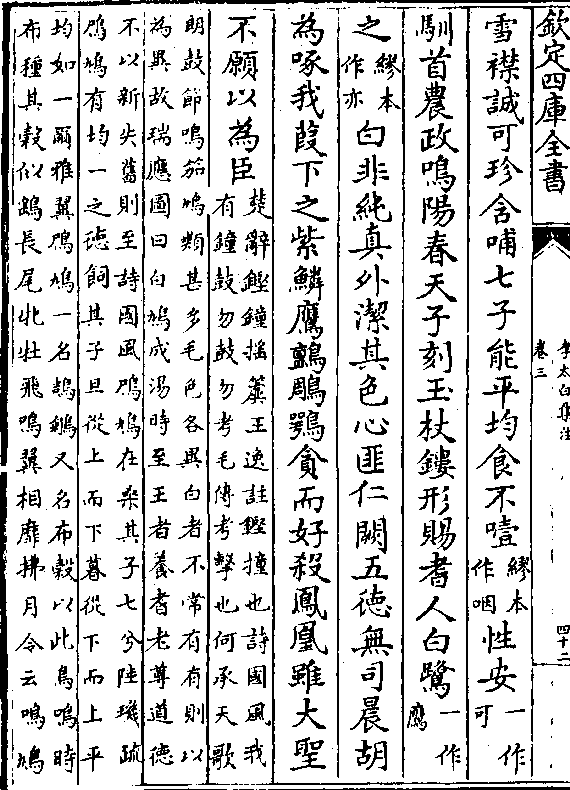 欽定四庫全書
李太白集注
卷三
四十二
雪襟誠可珍含哺七子能平均食不噎繆本作咽性安一作可
馴首農政鳴陽春天子刻玉杖鏤形賜耆人白鷺一作鷹
之繆本作亦白非純真外潔其色心匪仁闕五德無司晨胡
為啄我葭下之紫鱗鷹鸇鵰鶚貪而好殺鳳凰雖大聖
不願以為臣楚辭鏗鐘搖簴王逸註鏗撞也詩國風我有鐘鼓勿鼓勿考毛傳考擊也何承天歌
朗鼓節鳴笳鳩類甚多毛色各異白者不常有有則以
為異故瑞應圖曰白鳩成湯時至王者養耆老尊道德
不以新失舊則至詩國風鳲鳩在桑其子七兮陸璣疏
鳲鳩有均一之德飼其子旦從上而下暮從下而上平
均如一爾雅翼鳲鳩一名鴶鵴又名布穀以此鳥鳴時
布種其穀似鷂長尾牝牡飛鳴翼相靡拂月令云鳴鳩